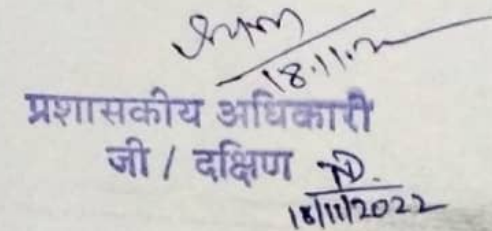 18.11.2
प्रशासकीय अधिकारी
जी / दक्षिण
18/11/2022